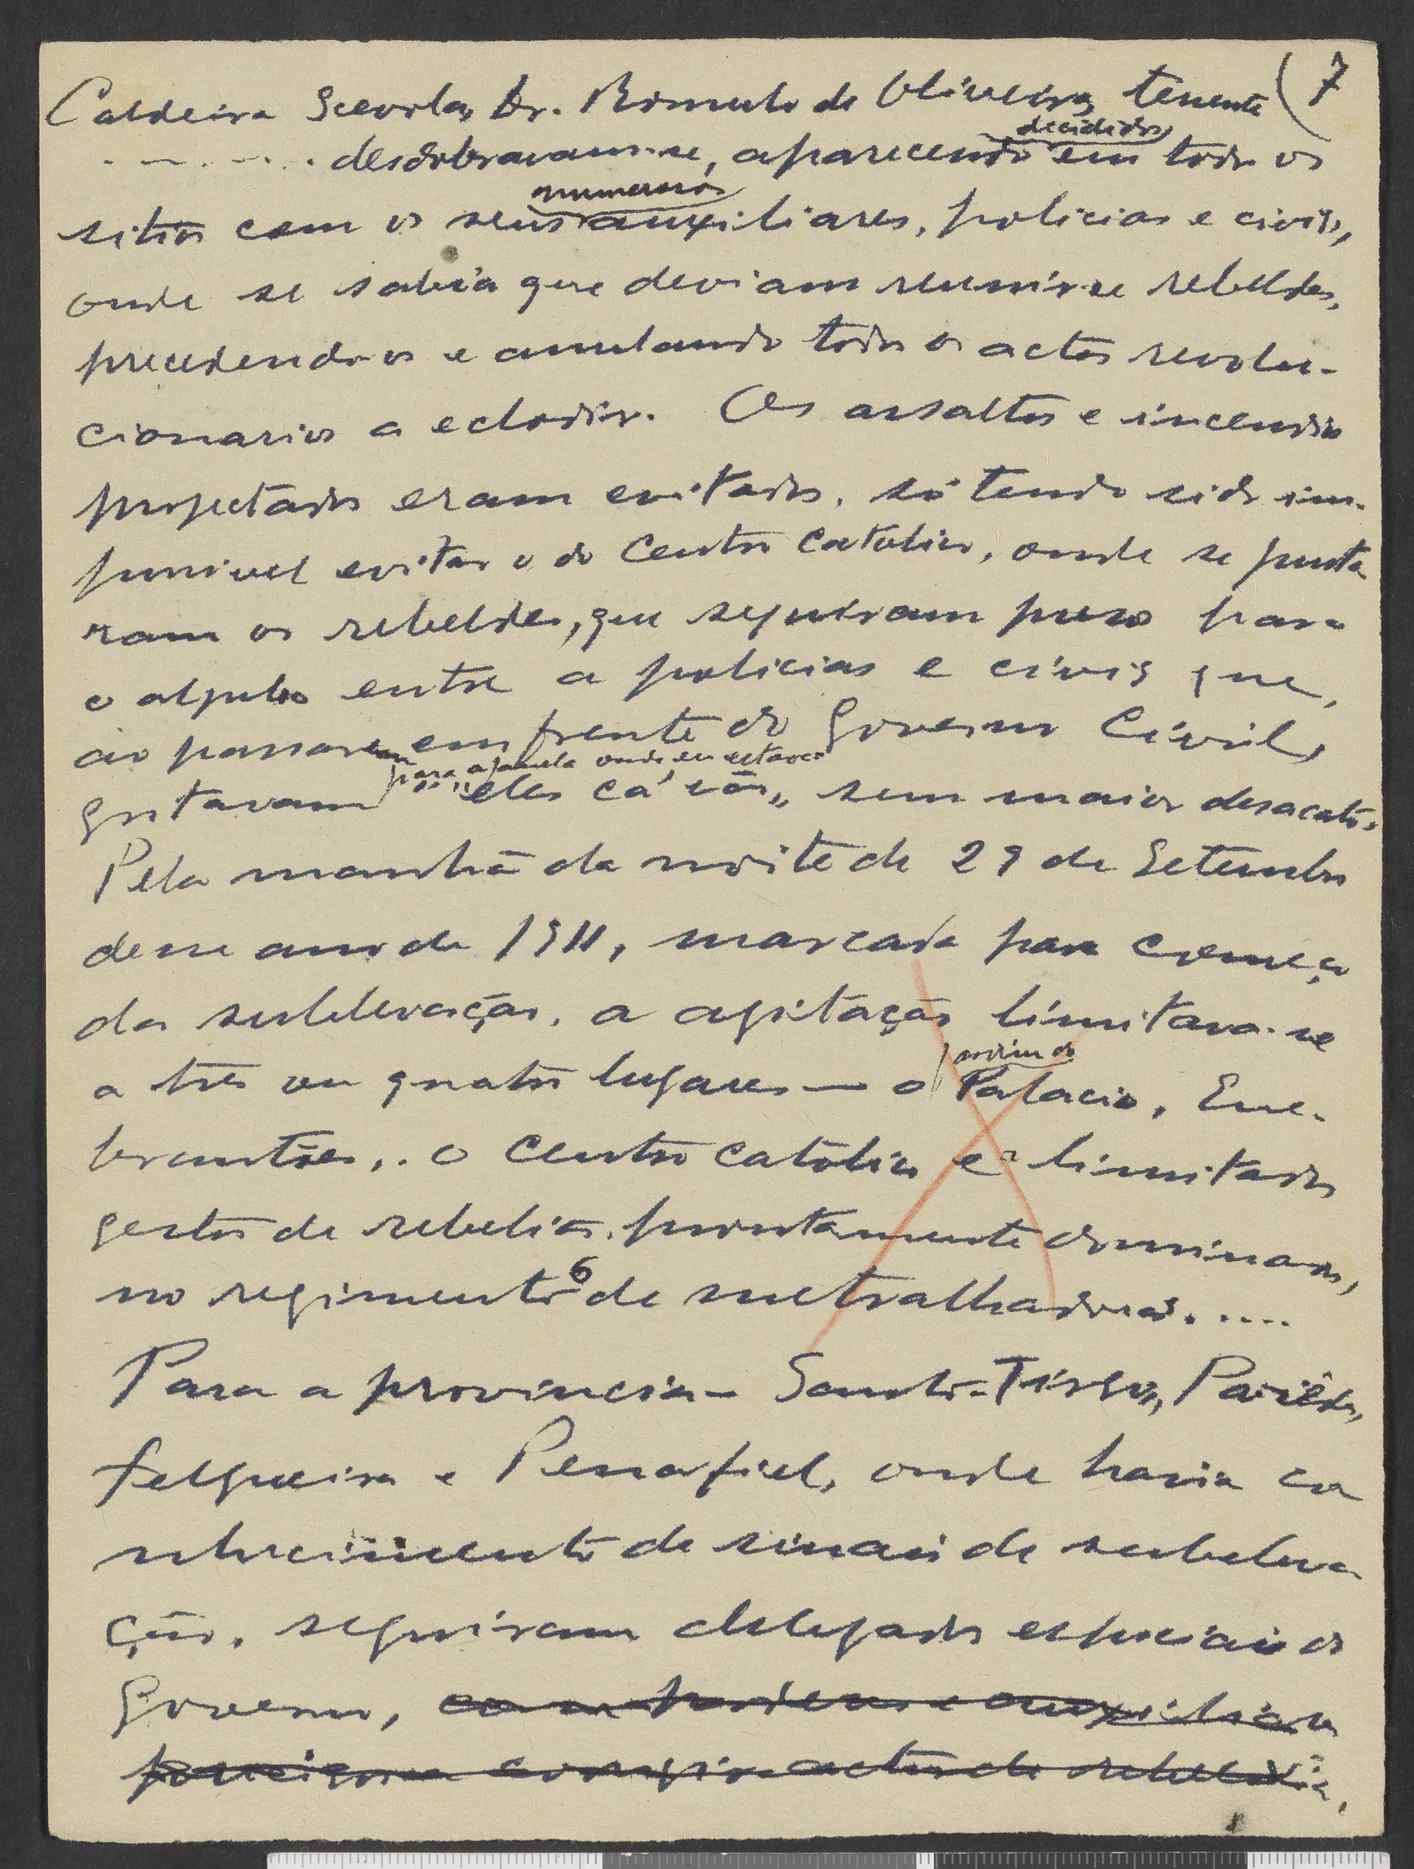 7
Caldeira Scevola, Dr. Romulo de Oliveira, tenente
. . . . . . desdobravam-se, aparecendo decididos em todos os
sitios com os seus numerosos auxiliares, policias e civis,
onde se sabia que deviam reunir-se rebeldes,
precedendo-os e anulando todos os actos revolu-
cionarios a eclodir. Os assaltos e incendios
projectados eram evitados, só tendo sido im-
possivel evitar o do Centro Catolico, onde se junta
ram os rebeldes, que seguiram presos para
o aljube entre a policias e civis que,
ao passarem em frente do Governo Civil,
gritavam para a janela onde eu estava "eles cá vão", sem maior desacato.
Pela manhã da noite de 29 de Setembro
desse ano de 1911, marcada para começo
da sublevação, a agitação limitava-se
a três ou quatro lugares — o jardim do Palacio,
o Centro Catolico e a limitados
gestos de rebelião, prontamente dominados,
no regimento 6 de metralhadoras.....
Para a provincia — Santo-Tirso, Parêdes,
Felgueira e Penafiel, onde havia co
nhecimento de sinais de subleva
ção, seguiram delegados especiais do
Governo, com poderes e auxiliares
para corrigir actos de rebeldia,